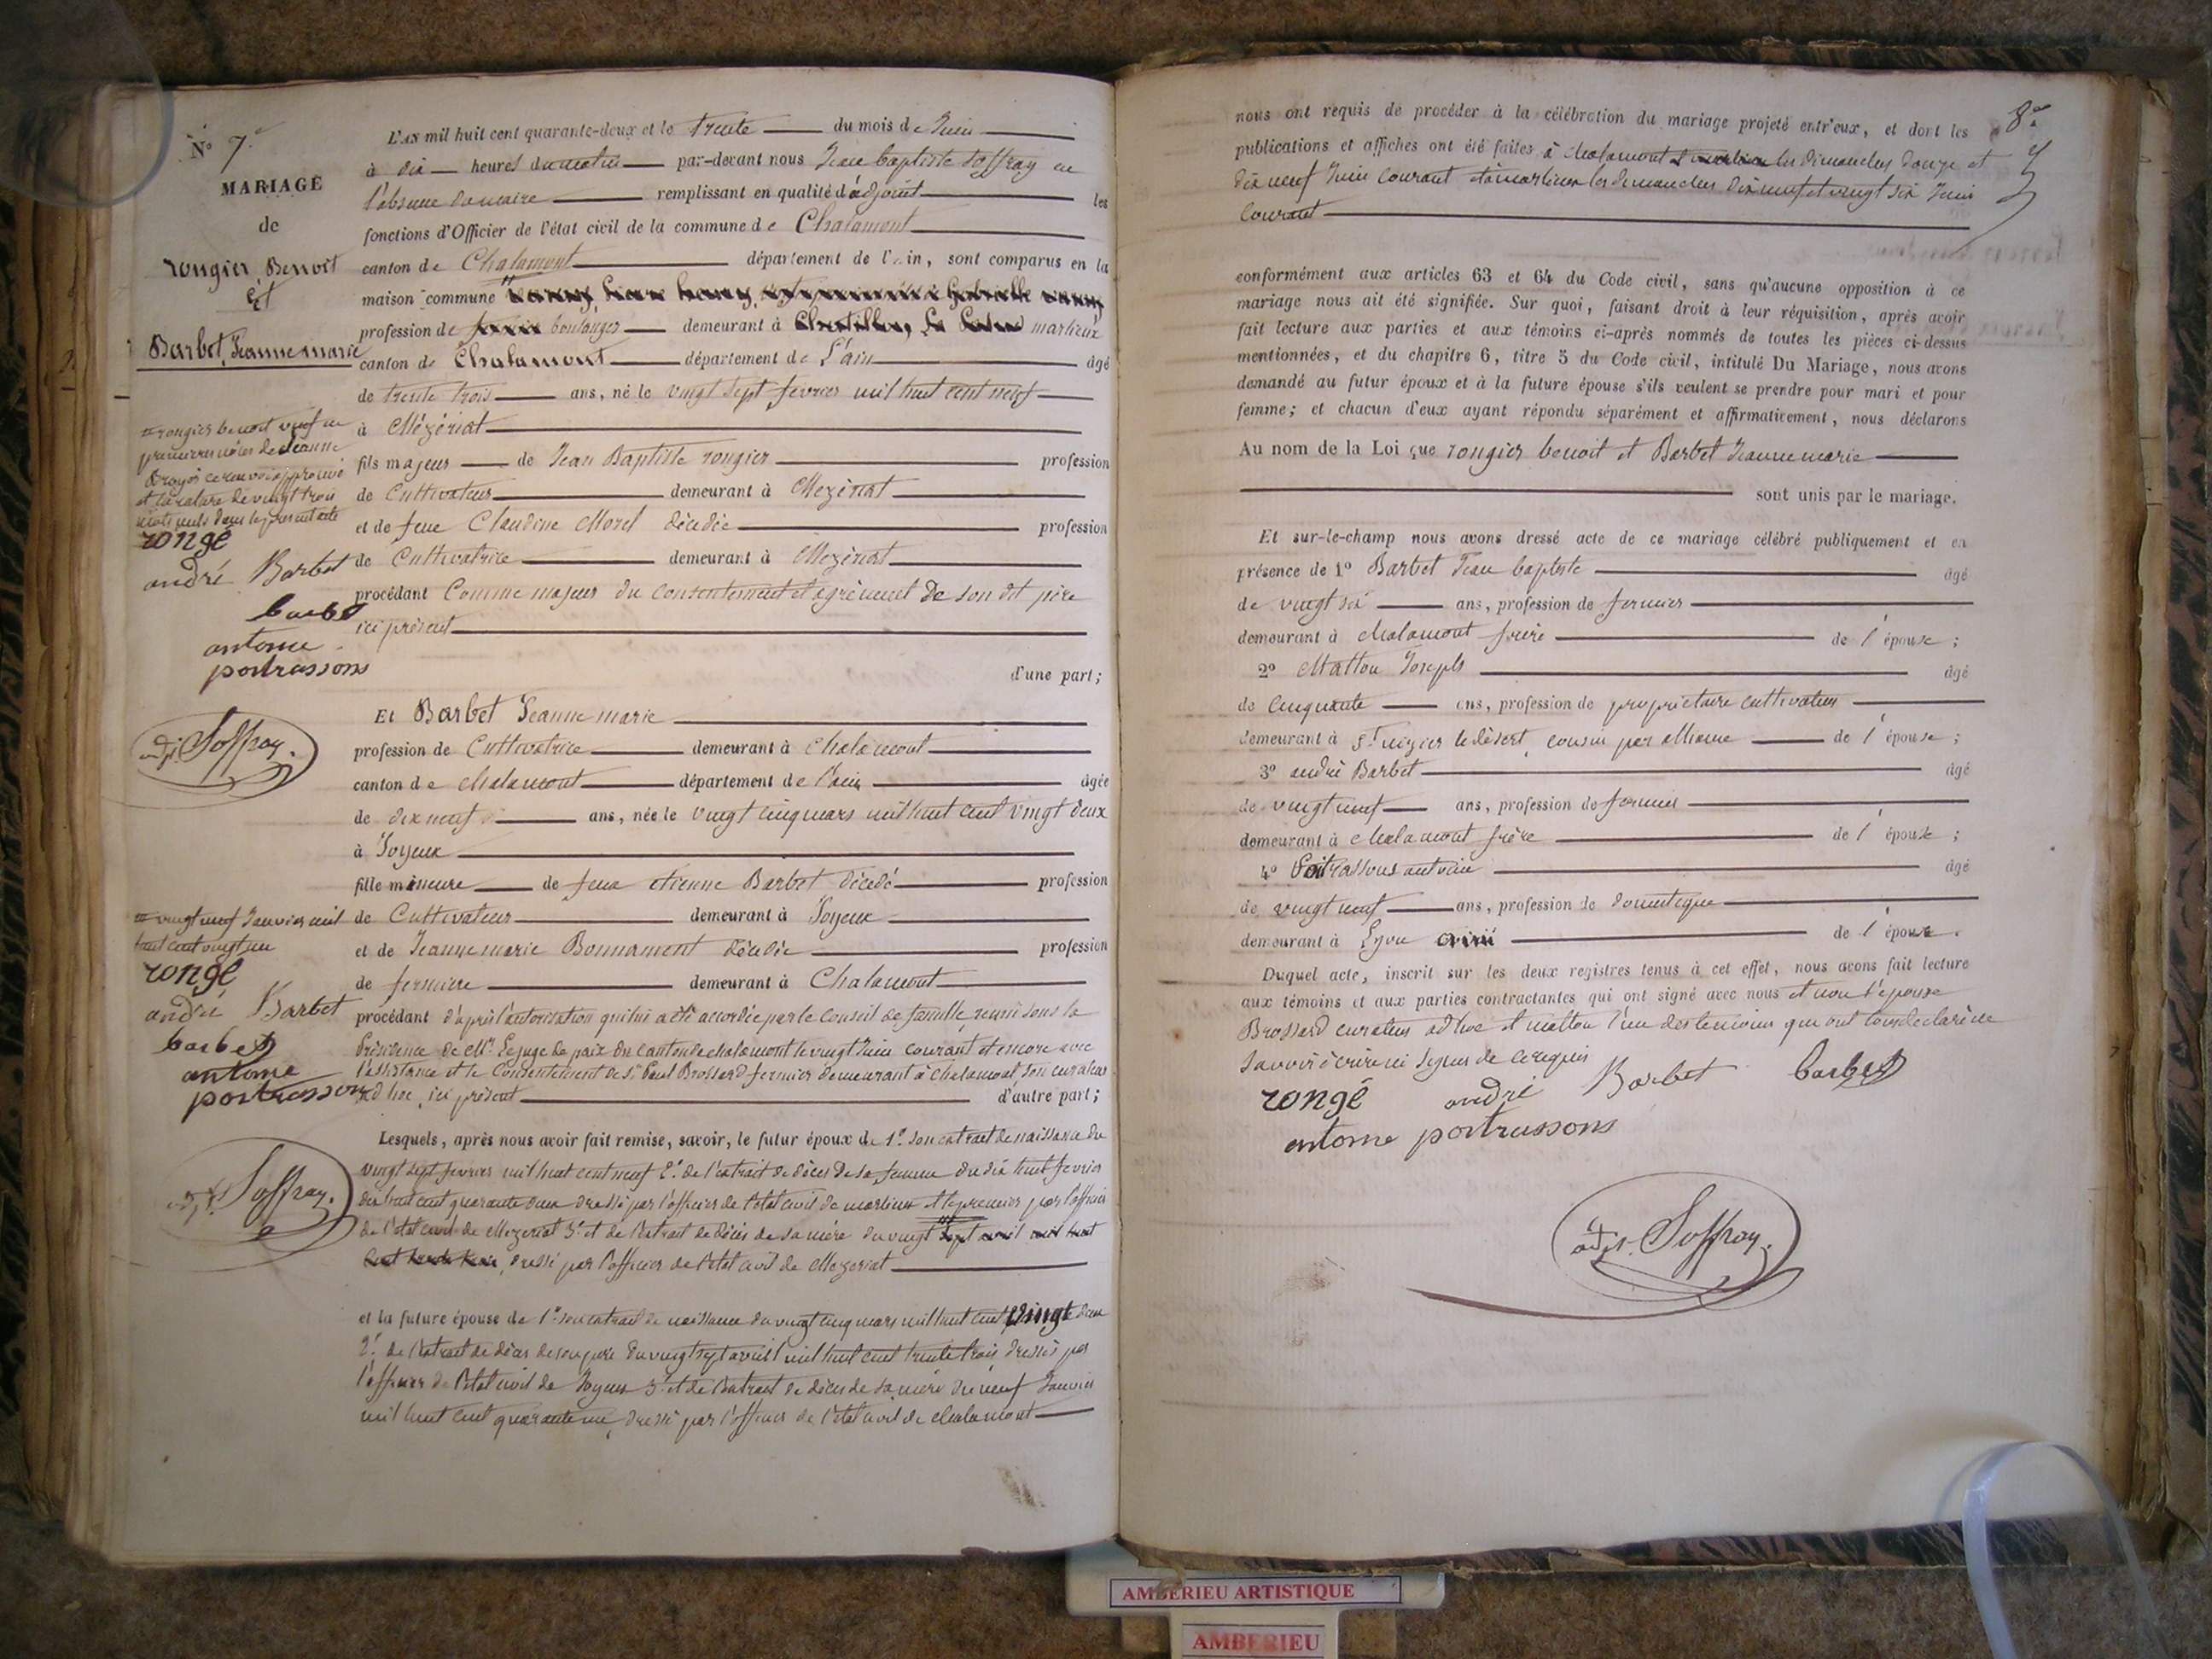 N° 7e
MARIAGE
de
rongier Benoit
Et
Barbet, Jeanne marie
= rongier benoit veuf en
premieres nôces de Jeanne
Broyer ce renvoi approuvé
et la rature de vingt trois
mots nuls dans le présent acte
rongé
andré Barbet
barbet
antome
portrassons
adjt. Soffray.
= vingt neuf Janvier mil
huit cent vingt un
rongé
andré Barbet
barbet
antome
portrassons
adjt. Soffray.
L'AN mil huit cent quarante-deux et le trente du mois de Juin
à dix heures du matin par-devant nous Jean baptiste Soffray en
l'absence du maire remplissant en qualité d'adjoint les
fonctions d'Officier de l'état civil de la commune de Chalamont
canton de Chalamont département de l'Ain, sont comparus en la
maison commune
profession de boulanger demeurant à marlieux
canton de Chalamont département de L'ain âgé
de trente trois ans, né le vingt sept fevrier mil huit cent neuf
à Mézériat
fils majeur de Jean Baptiste rongier profession
de Cultivateur demeurant à Mezériat
et de feue Claudine Morel décédée profession
de Cultivatrice demeurant à Mezériat
procédant Comme majeur du consentement et agrément de son dit père
ici présent
d'une part;
Et Barbet Jeanne marie
profession de Cultivatrice demeurant à Chalamont
canton de chalamont département de l'ain âgée
de dix neuf ans, née le vingt cinq mars mil huit cent vingt deux
à Joyeux
fille mineure de feu etienne Barbet décedé profession
de Cultivateur demeurant à Joyeux
et de Jeanne marie Bonnament décédée profession
de fermiere demeurant à Chalamont
procédant d'après l'autorisation qui lui a été accordée par le Conseil de famille, reuni sous la
Présidence de Mr. Le juge de paix du Canton de chalamont le vingt Juin courant et encore avec
l'assistance et le Consentement de Sr. Paul Brossard fermier demeurant à Chalamont, son curateur
ad hoc, ici présent d'autre part;
Lesquels, après nous avoir fait remise, savoir, le futur époux de 1° son extrait de naissance du
vingt sept fevrier mil huit cent neuf 2° de l'extrait de décès de sa femme du dix huit fevrier
mil huit cent quarante deux dressé par l'officier de l'état civil de marlieux et le premier par l'officier
de l'état civil de Mezeriat 3° et de l'extrait de décès de sa mère du vingt sept avril mil huit
cent trente trois, dressé par l'officier de l'état civil de Mezeriat
et la future épouse de 1° son extrait de naissance du vingt cinq mars mil huit cent vingt deux
2° de l'extrait de décès de son père du vingt sept avril mil huit cent trente trois dressés par
l'officier de l'état civil de Joyeux 3° et de l'extrait de décès de sa mère du neuf Janvier
mil huit cent quarante un, dressé par l'officier de l'état civil de chalamont
8e
nous ont requis de procéder à la célébration du mariage projeté entr'eux, et dont les
publications et affiches ont été faites à chalamont et marlieux les dimanches douze et
dix neuf Juin courant et à marlieux les dimanches dix neuf et vingt six Juin
courant
conformément aux articles 63 et 64 du Code civil, sans qu'aucune opposition à ce
mariage nous ait été signifiée. Sur quoi, faisant droit à leur réquisition, après avoir
fait lecture aux parties et aux témoins ci-après nommés de toutes les pièces ci-dessus
mentionnées, et du chapitre 6, titre 5 du Code civil, intitulé Du Mariage, nous avons
demandé au futur époux et à la future épouse s'ils veulent se prendre pour mari et pour
femme; et chacun d'eux ayant répondu séparément et affirmativement, nous déclarons
Au nom de la Loi que rongier benoit et Barbet Jeanne marie
sont unis par le mariage.
Et sur-le-champ nous avons dressé acte de ce mariage célébré publiquement et en
présence de 1° Barbet Jean baptiste âgé
de vingt six ans, profession de fermier
demeurant à chalamont frère de l'épouse;
2° Matton Joseph âgé
de Cinquante ans, profession de propriétaire cultivateur
demeurant à St. nizier le désert, cousin par alliance de l'épouse;
3° andré Barbet âgé
de vingt neuf ans, profession de fermier
demeurant à chalamont frère de l'épouse;
4° Poitrassons antoine âgé
de vingt neuf ans, profession de domestique
demeurant à Lyon ami de l'épouse.
Duquel acte, inscrit sur les deux registres tenus à cet effet, nous avons fait lecture
aux témoins et aux parties contractantes qui ont signé avec nous et non l'épouse
Brossard curateur ad hoc et matton l'un des temoins qui ont tous declaré ne
savoir écrire ni signer de ce requis
rongé andré Barbet barbet
antome portrassons
adjt. Soffray.
AMBERIEU ARTISTIQUE
AMBERIEU